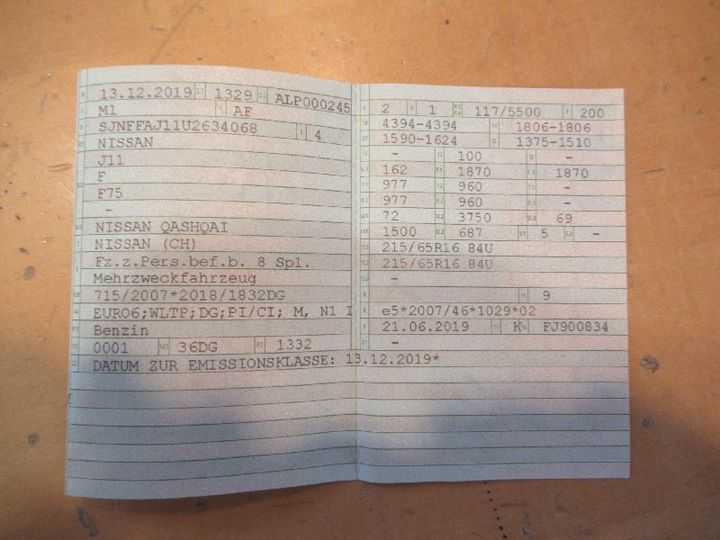 13.12.2019 1329 ALP000245
M1 AF
SJNFFAJ11U2634068 4
NISSAN
J11
F
F75
-
NISSAN QASHQAI
NISSAN (CH)
Fz.z.Pers.bef.b. 8 Spl.
Mehrzweckfahrzeug
715/2007*2018/1832DG
EURO6;WLTP;DG;PI/CI; M, N1 I
Benzin
0001 36DG 1332
DATUM ZUR EMISSIONSKLASSE: 13.12.2019*
2 1 117/5500 200
4394-4394 1806-1806
1590-1624 1375-1510
- 100 -
162 1870 1870
977 960
977 960
72 3750 69
1500 687 5 -
215/65R16 84U
215/65R16 84U
9
e5*2007/46*1029*02
21.06.2019 K FJ900834
-